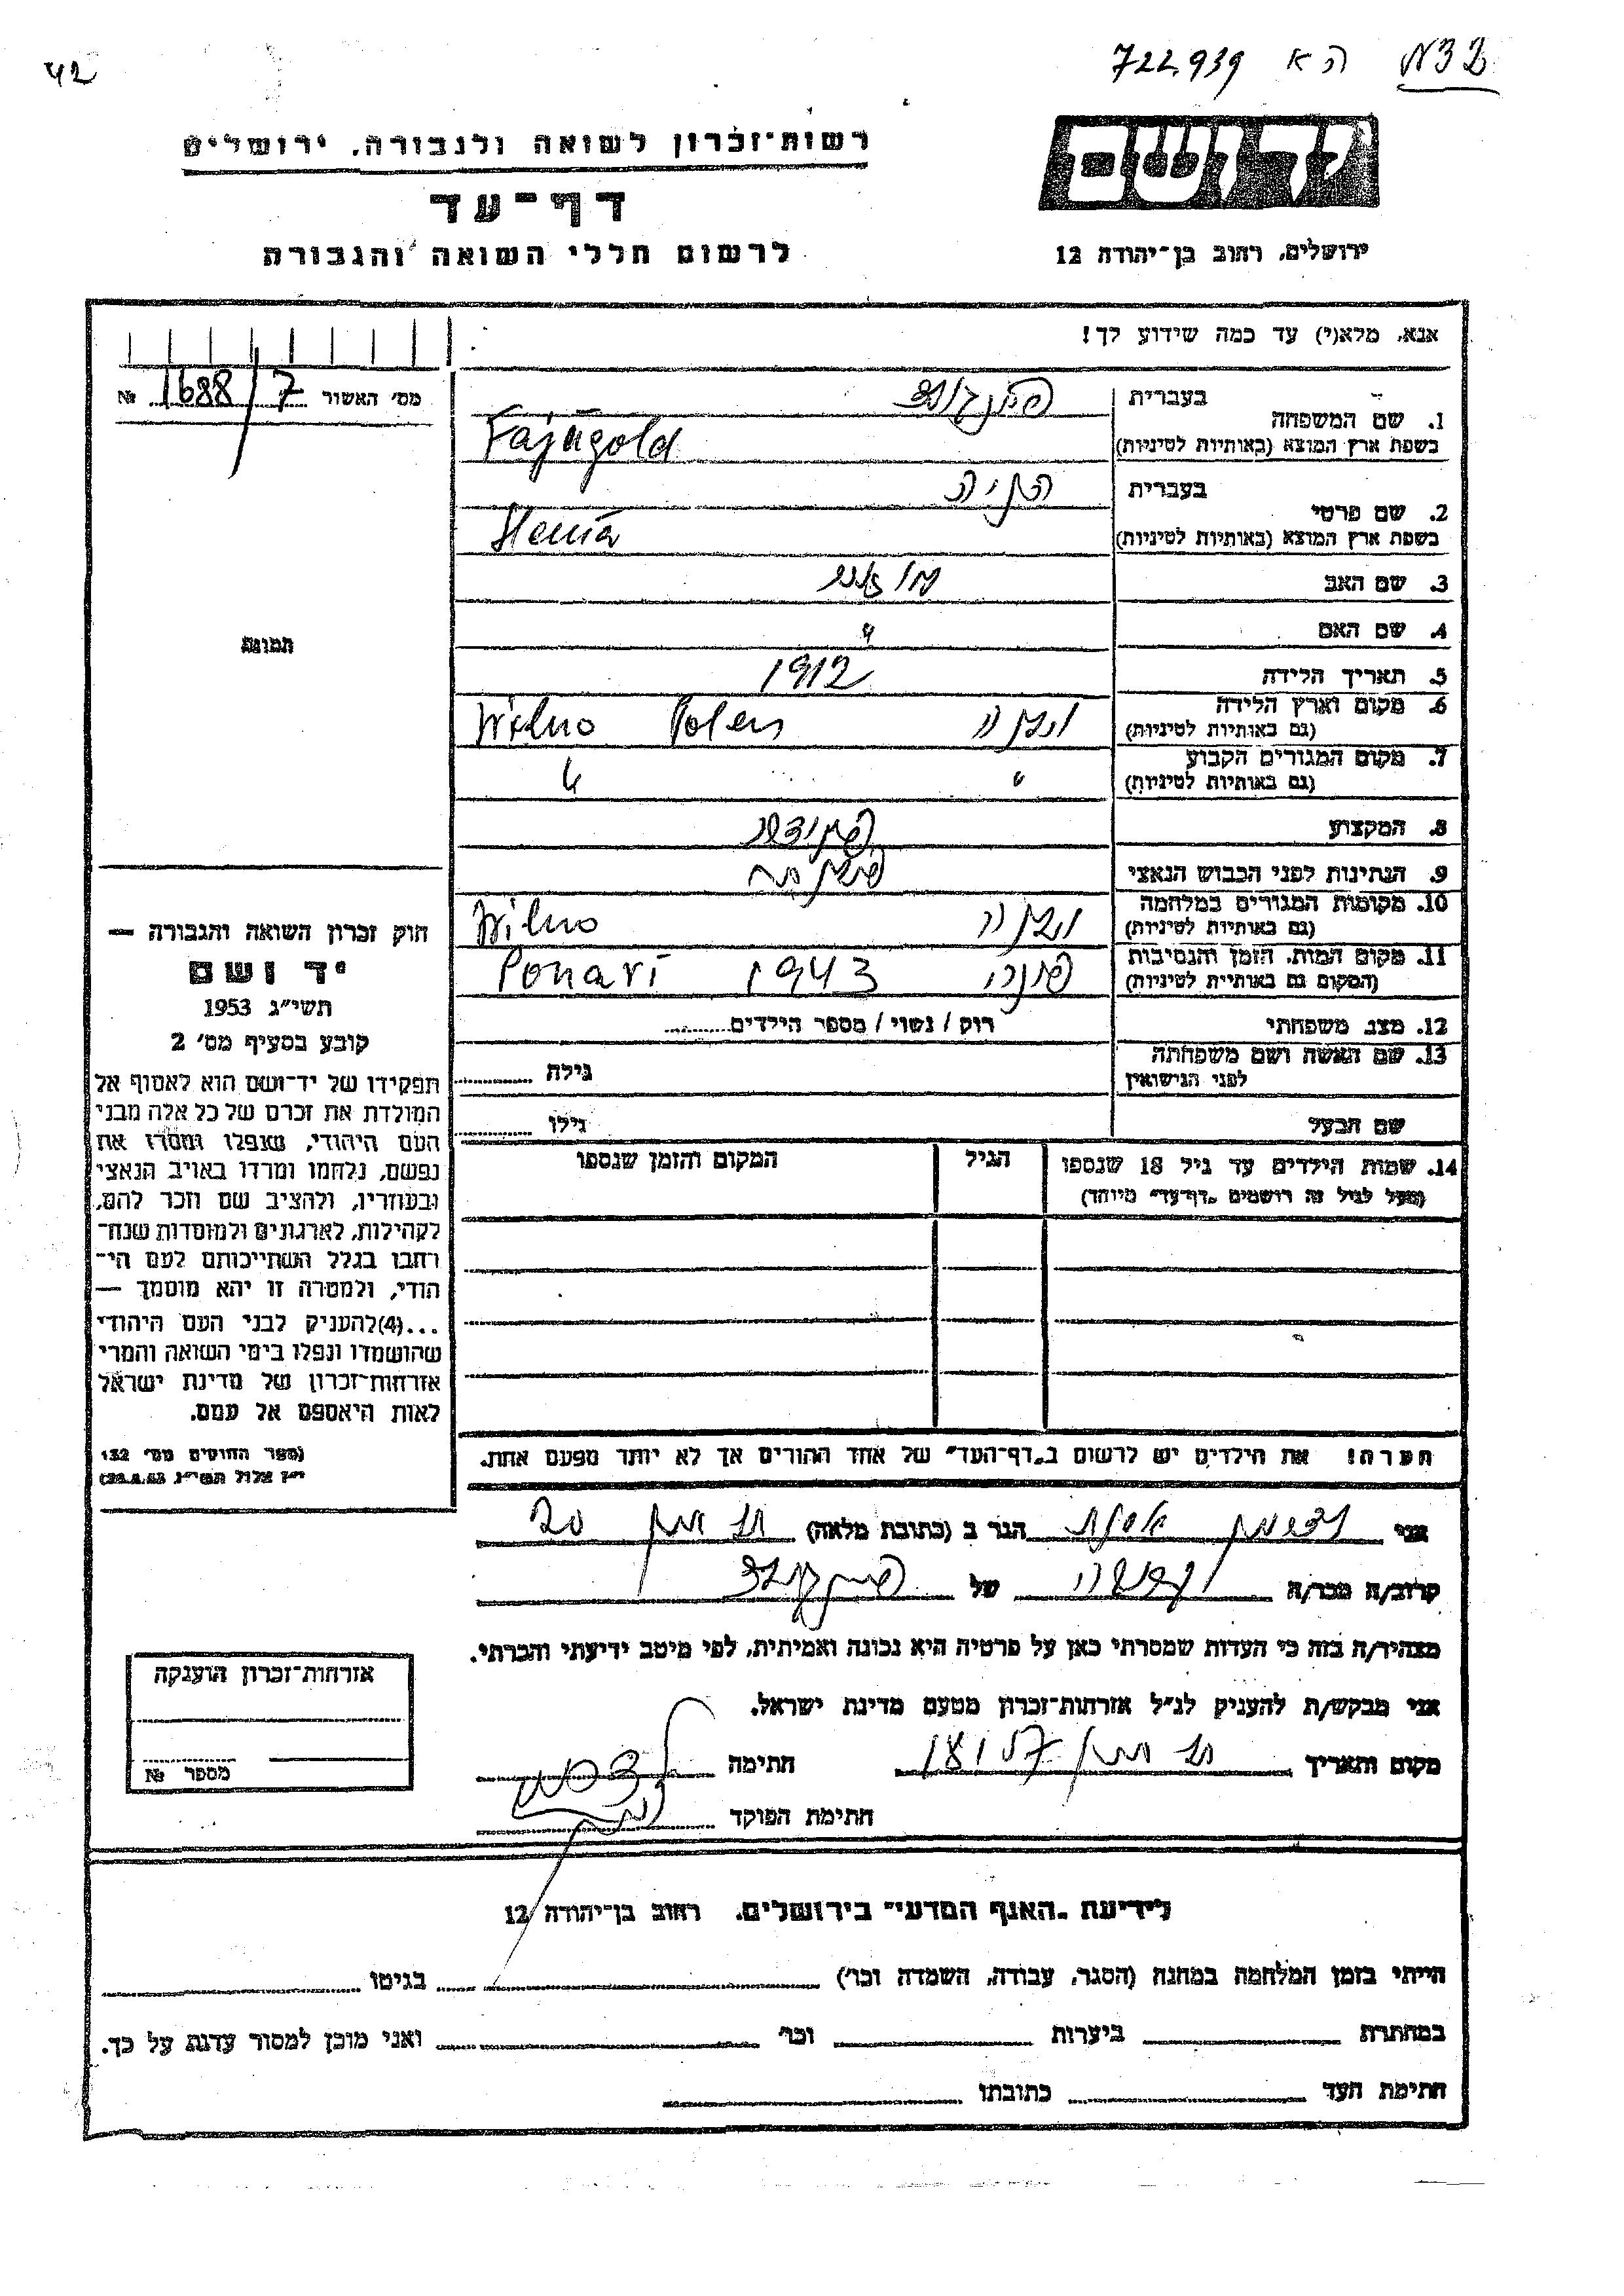 42
722939 הא
ידושם
רשות־זכרון לשואה ולגבורה, ירושלים
דף־עד
לרשום חללי השואה והגבורה
ירושלים, רחוב בן־יהודה 12
אנא, מלא(י) עד כמה שידוע לך!
מס׳ האשור 1688/7 №
1. שם המשפחה
בעברית פיינגולד
בשפת ארץ המוצא (באותיות לטיניות) Fajngold
2. שם פרטי
בעברית הניה
בשפת ארץ המוצא (באותיות לטיניות) Henia
3. שם האב
4. שם האם
5. תאריך הלידה 1912
6. מקום וארץ הלידה
(גם באותיות לטיניות) וילנה Wilno Polen
7. מקום המגורים הקבוע
(גם באותיות לטיניות) " "
8. המקצוע
9. הנתינות לפני הכבוש הנאצי
10. מקומות המגורים במלחמה
(גם באותיות לטיניות) וילנה Wilno
11. מקום המות, הזמן והנסיבות
(המקום גם באותיות לטיניות) פונרי 1943 Ponari
12. מצב משפחתי רוק / נשוי / מספר הילדים
13. שם האשה ושם משפחתה
לפני הנישואין
גילה
שם הבעל
גילו
14. שמות הילדים עד גיל 18 שנספו
(מעל לגיל זה רושמים „דף־עד” מיוחד)
הגיל
המקום והזמן שנספו
הערה! את הילדים יש לרשום ב„דף־העד” של אחד ההורים אך לא יותר מפעם אחת.
תמונה
חוק זכרון השואה והגבורה —
יד ושם
תשי״ג 1953
קובע בסעיף מס׳ 2
תפקידו של יד־ושם הוא לאסוף אל
המולדת את זכרם של כל אלה מבני
העם היהודי, שנפלו ומסרו את
נפשם, נלחמו ומרדו באויב הנאצי
ובעוזריו, ולהציב שם וזכר להם,
לקהילות, לארגונים ולמוסדות שנח־
רבו בגלל השתייכותם לעם הי־
הודי, ולמטרה זו יהא מוסמך —
...(4)להעניק לבני העם היהודי
שהושמדו ונפלו בימי השואה והמרי
אזרחות־זכרון של מדינת ישראל
לאות היאספם אל עמם.
(ספר החוקים מס׳ 132
י״ז אלול תשי״ג, 28.8.53)
אני הגר ב (כתובת מלאה) 20
קרוב/ה מכר/ה של פיינגולד
מצהיר/ה בזה כי העדות שמסרתי כאן על פרטיה היא נכונה ואמיתית, לפי מיטב ידיעתי והכרתי.
אני מבקש/ת להעניק לנ״ל אזרחות־זכרון מטעם מדינת ישראל.
מקום ותאריך
חתימה
חתימת הפוקד
אזרחות־זכרון הוענקה
מספר №
לידיעת „האגף המדעי” בירושלים, רחוב בן־יהודה 12
הייתי בזמן המלחמה במחנה (הסגר, עבודה, השמדה וכו׳) בגיטו
במחתרת ביערות וכו׳ ואני מוכן למסור עדות על כך.
חתימת העד כתובתו